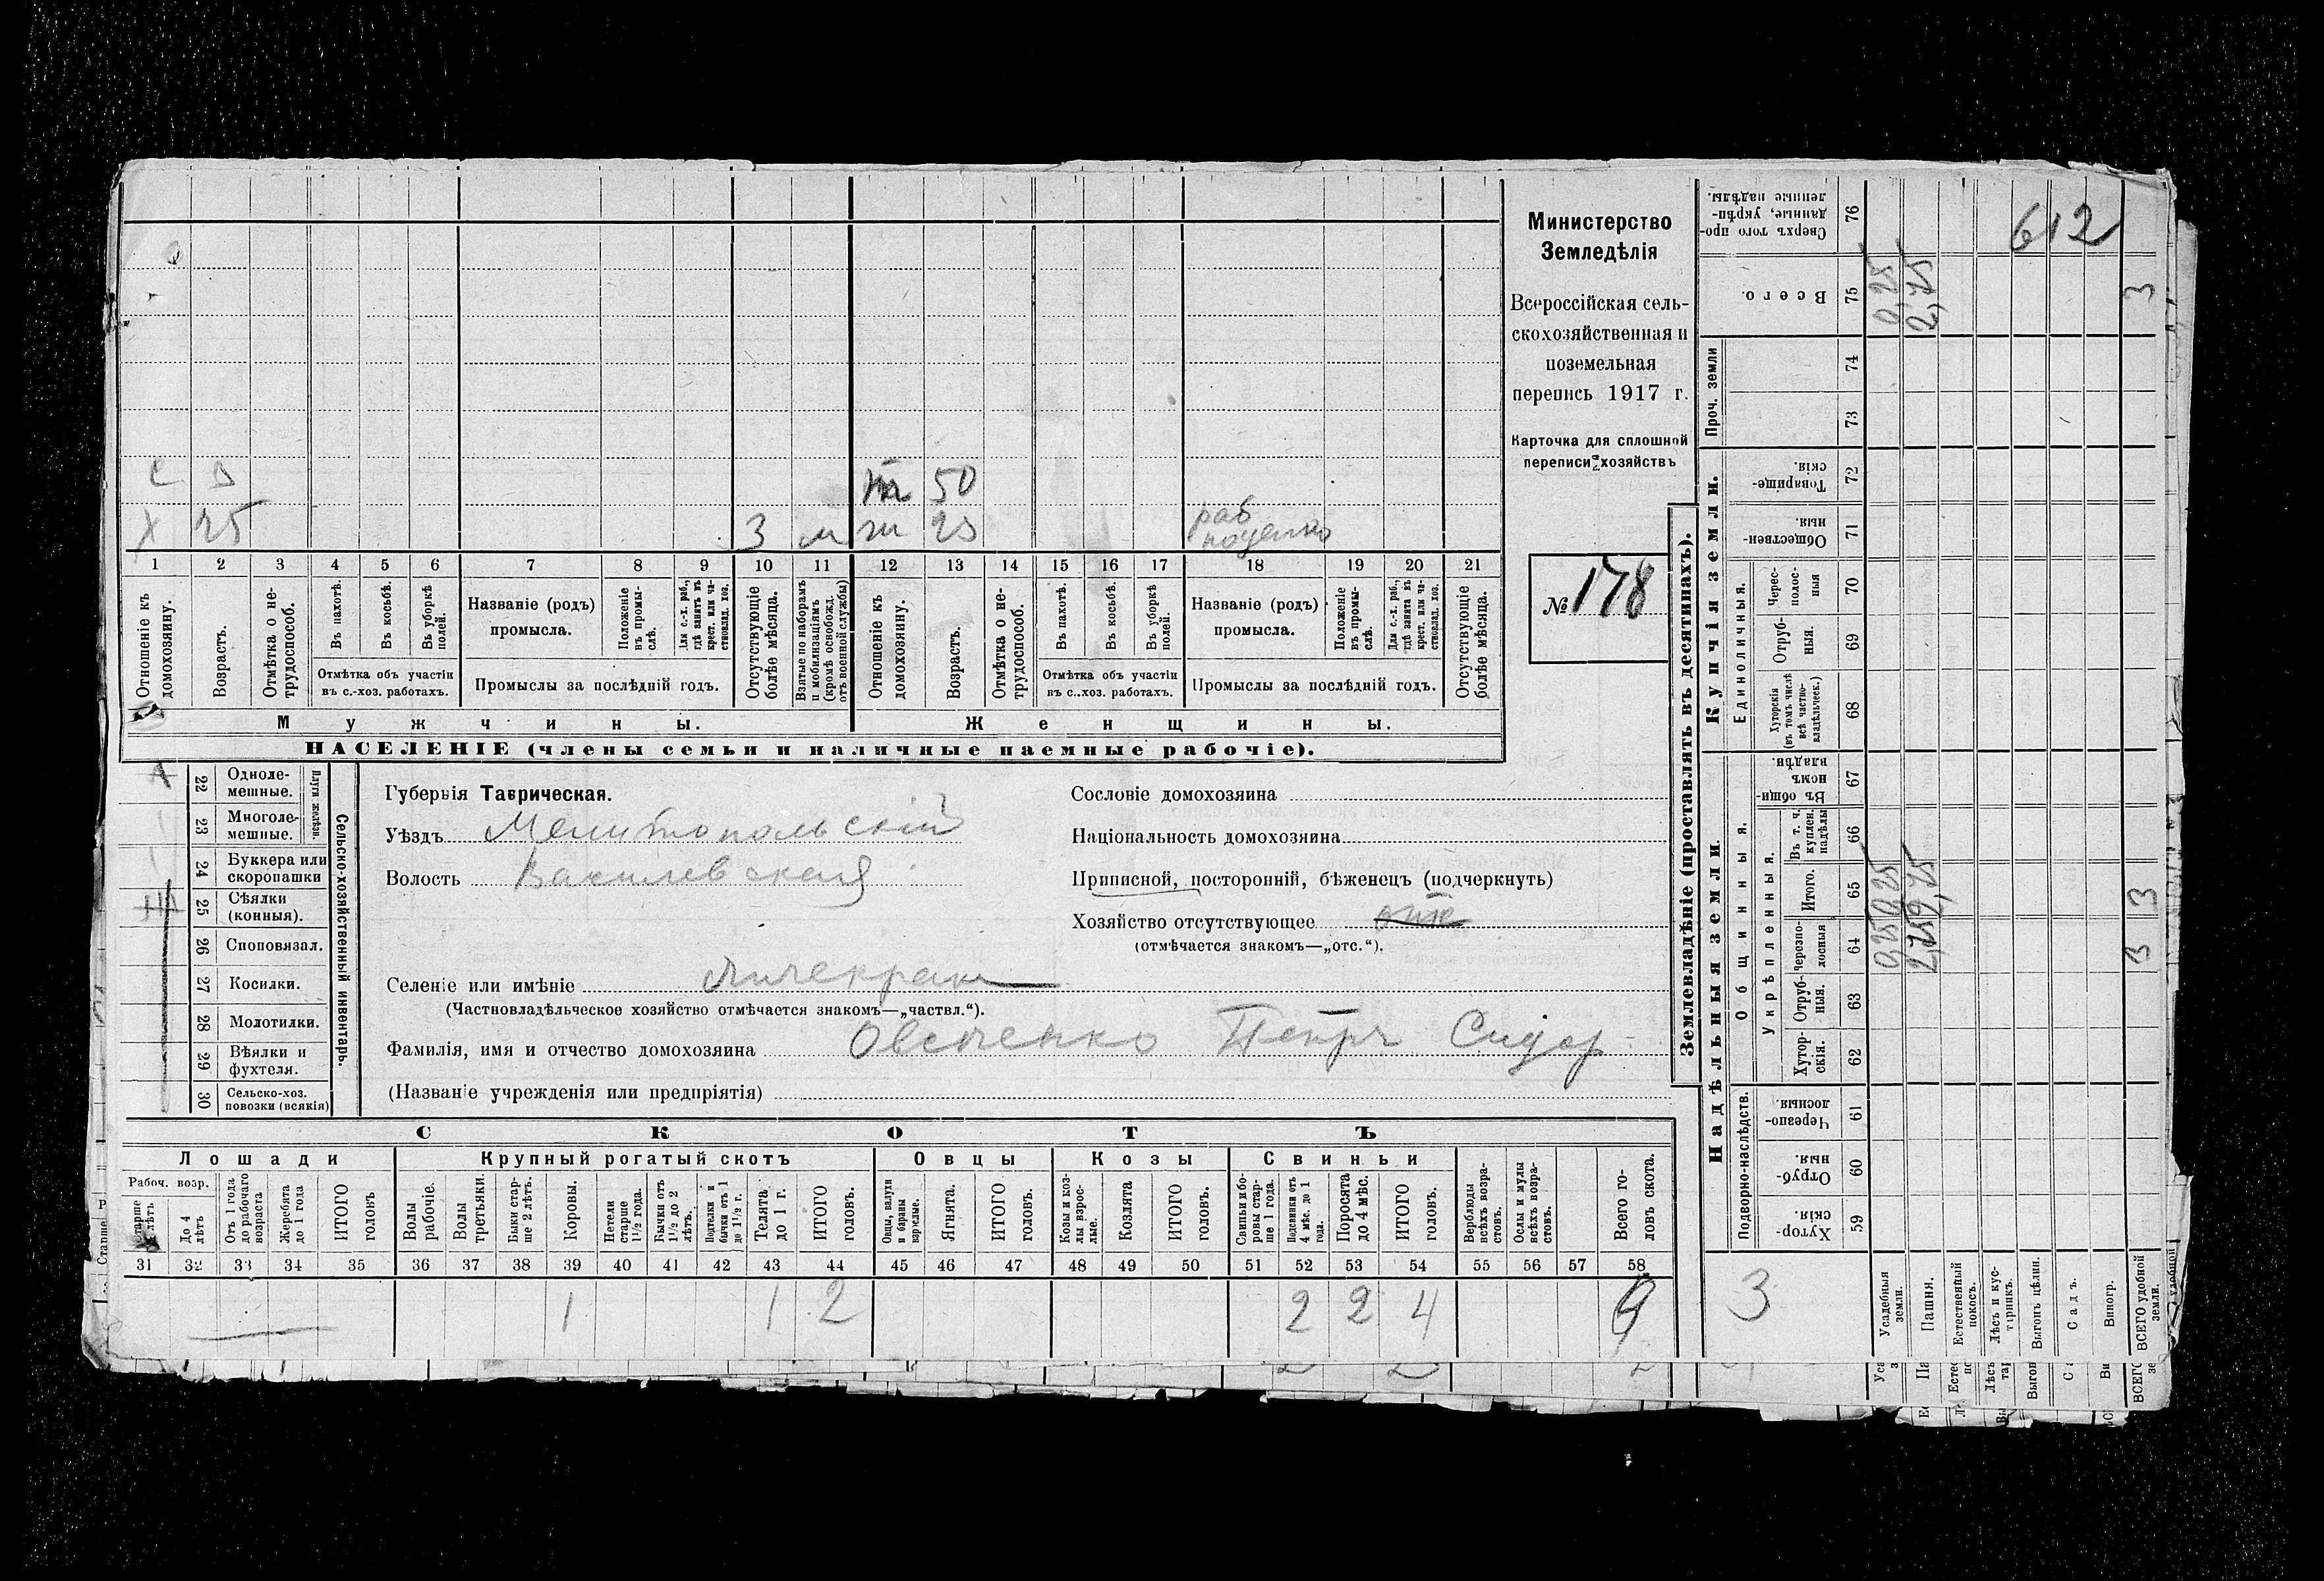 Министерство
Земледѣлія
Всероссійская сель-
скохозяйственная и
поземельная
перепись 1917 г.
Карточка для сплошной
переписи хозяйствъ
№ 178
50
Х 25 3 м ж 23 раб
1 2 3 4 5 6 7 8 9 10 11 12 13 14 15 16 17 18 19 20 21
Отношеніе къ домохозяину.
Возрастъ.
Отмѣтка о не-трудоспособ.
Въ пахотѣ.
Въ косьбѣ.
Въ уборкѣ полей.
Отмѣтка объ участіи
въ с.-хоз. работахъ.
Названіе (родъ)
промысла.
Положеніе въ промы-слѣ.
Для с.-х. раб., гдѣ занятъ въ крест. или ча-стновлад. хоз.
Промыслы за послѣдній годъ.
Отсутствующіе болѣе мѣсяца.
Взятые по наборамъ и мобилизаціямъ (кромѣ освобожд. отъ военной службы)
Отношеніе къ домохозяину.
Возрастъ.
Отмѣтка о не-трудоспособ.
Въ пахотѣ.
Въ косьбѣ.
Въ уборкѣ полей.
Отмѣтка объ участіи
въ с.-хоз. работахъ.
Названіе (родъ)
промысла.
Положеніе въ промы-слѣ.
Для с.-х. раб., гдѣ занята въ крест. или ча-стновлад. хоз.
Промыслы за послѣдній годъ.
Отсутствующіе болѣе мѣсяца.
Мужчины. Женщины.
НАСЕЛЕНІЕ (члены семьи и наличные наемные рабочіе).
22 Одноле-мешные.
23 Многоле-мешные.
Плуги желѣзн.
24 Буккера или скоропашки
25 Сѣялки (конныя).
26 Споповязал.
27 Косилки.
28 Молотилки.
29 Вѣялки и фухтеля.
30 Сельско-хоз. повозки (всякія)
Сельско-хозяйственный инвентарь.
Губернія Таврическая.
Уѣздъ Мелитопольскій
Волость Василевская
Селеніе или имѣніе
(Частновладѣльческое хозяйство отмѣчается знакомъ—„частвл.“).
Фамилія, имя и отчество домохозяина Овсіенко Петръ Сидор
(Названіе учрежденія или предпріятія)
Сословіе домохозяина
Національность домохозяина
Приписной, посторонній, бѣженецъ (подчеркнуть)
Хозяйство отсутствующее отс
(отмѣчается знакомъ—„отс.“).
СКОТЪ
Лошади Крупный рогатый скотъ Овцы Козы Свиньи
Рабоч. возр.
Старше 4 лѣтъ
До 4 лѣтъ
Отъ 1 года до рабочаго возраста
Жеребята до 1 года
ИТОГО головъ
Волы рабочіе.
Волы третьяки.
Быки стар-ше 2 лѣтъ.
Коровы.
Нетели старше 1½ года.
Бычки отъ 1½ до 2 лѣтъ.
Подтелки и бычки отъ 1 до 1½ г.
Телята до 1 г.
ИТОГО головъ.
Овцы, валухи и бараны взрослые.
Ягнята.
ИТОГО головъ.
Козы и коз-лы взрос-лые.
Козлята
ИТОГО головъ.
Свиньи и бо-ровы стар-ше 1 года.
Подсвинки отъ 4 мѣс. до 1 года.
Поросята до 4 мѣс.
ИТОГО головъ.
Верблюды всѣхъ возра-стовъ.
Ослы и мулы всѣхъ возра-стовъ.
Всего го-ловъ скота.
31 32 33 34 35 36 37 38 39 40 41 42 43 44 45 46 47 48 49 50 51 52 53 54 55 56 57 58
1 1 2 2 2 4
Землевладѣніе (проставлять въ десятинахъ).
Купчія земли.
Надѣльныя земли.
Проч. земли
Единоличныя.
Общинныя.
Укрѣпленныя.
Подворно-наслѣдств.
76 Сверхъ того про-данные, укрѣп-ленные надѣлы.
75 Всего.
74
73
72 Товарище-скія.
71 Обществен-ныя.
70 Черес-полос-ныя
69 Отруб-ныя.
68 Хуторскія (въ томъ числѣ всѣ частно-владѣльческ.)
67 Въ общин-номъ владѣн.
66 Въ т. ч. куплен. надѣлы
65 Итого.
64 Черезпо-лосныя
63 Отруб-ныя.
62 Хутор-скія.
61 Черезпо-лосныя.
60 Отруб-ныя.
59 Хутор-скія.
612
0,25 0,25 0,25
2,75 2,75 2,75
3 3 3
3
Усадебныя земли.
Пашня.
Естественный покосъ.
Лѣсъ и кус-тарникъ.
Выгонъ цѣлин.
Садъ.
Виногр.
ВСЕГО удобной земли.